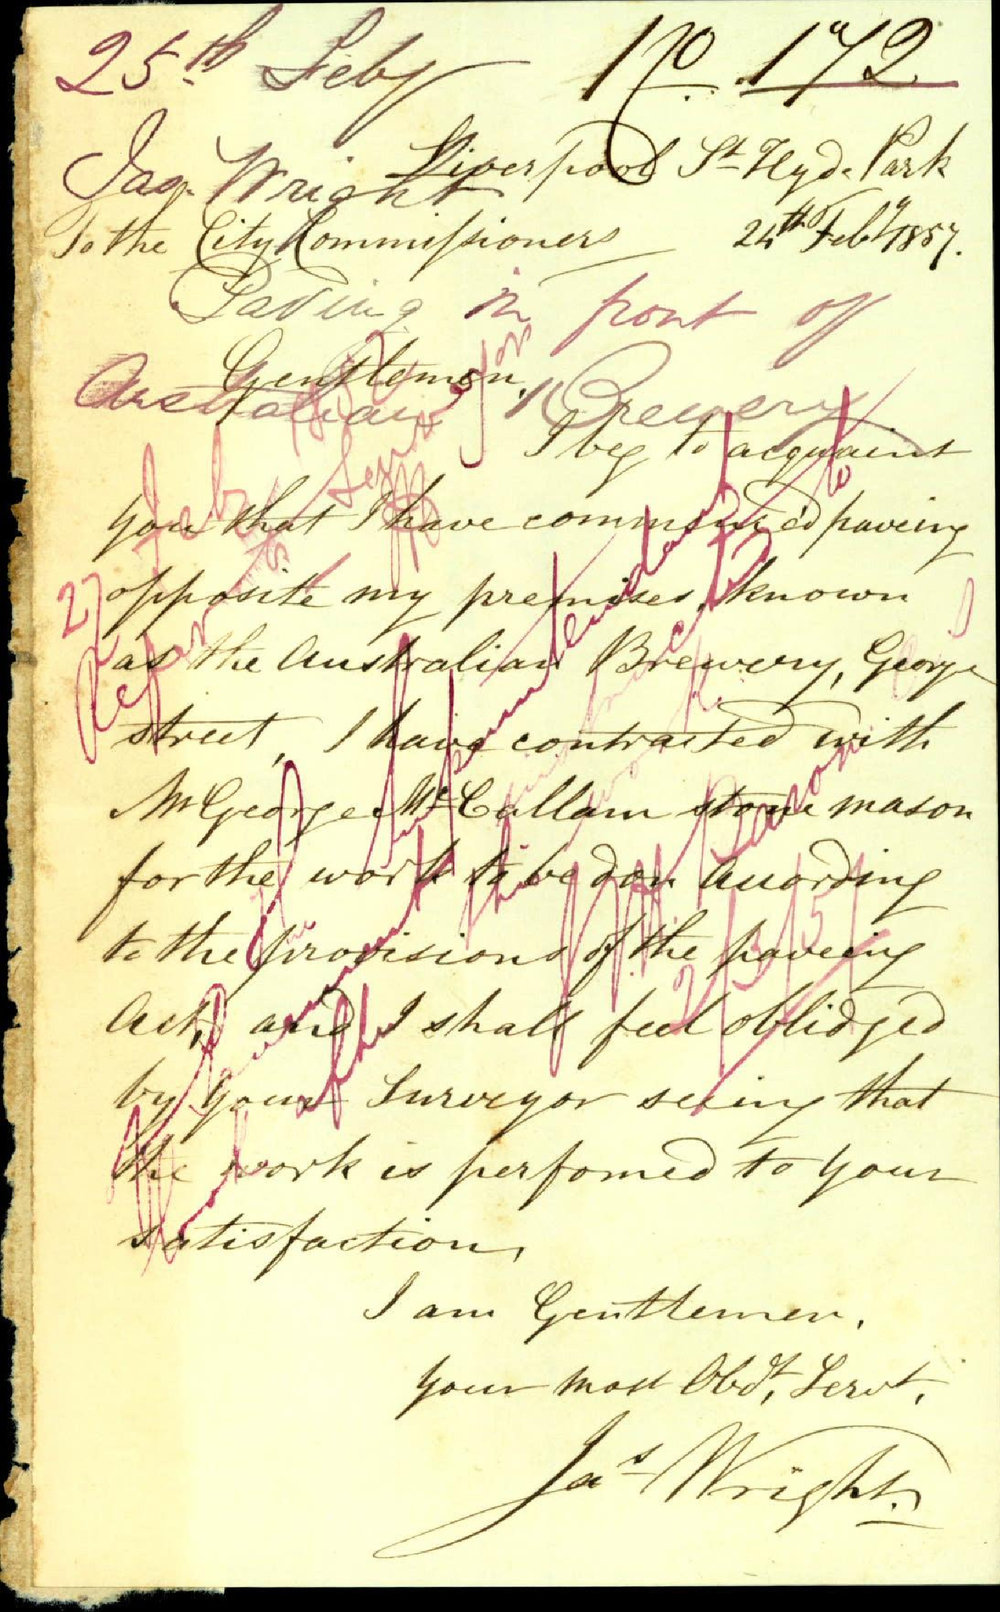 25th Feby No. 172
Liverpool St Hyde Park
Jas. Wright
To the City Commissioners 24th Feby 1857.
Paving in front of
Gentlemen,
Australian Brewery
I beg to acquaint
you that I have commenced paveing
opposite my premises, known
as the Australian Brewery, George
street, I have contracted with
Mr George McCallam stone mason
for the work to be don according
to the provisions of the paveing
Act, and I shall feel oblidged
by your Surveyor seeing that
the work is perfomed to your
satisfaction,
I am Gentlemen,
your most Obdt, Servt,
Jas Wright.
27 Feby
Refer to Surveyor